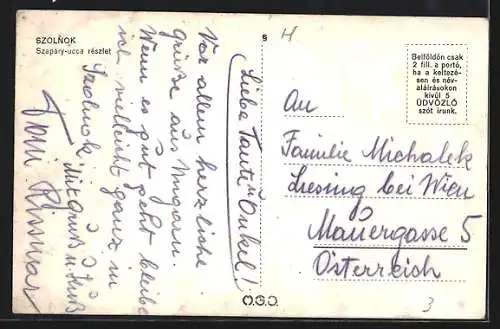 SZOLNOK
Szapáry-ucca részlet
Liebe Tante u Onkel!
Vor allem herzliche
Grüße aus Ungarn.
Wenn es gut geht bleibe
ich vielleicht ganz in
Szolnok
Mit Gruß u Kuß
Toni
§
H
Belföldön csak
2 fill. a portó,
ha a keltezé-
sen és név-
aláírásokon
kívül 5
ÜDVÖZLŐ
szót írunk.
An
Familie Michalek
Liesing bei Wien
Mauergasse 5
Österreich
3